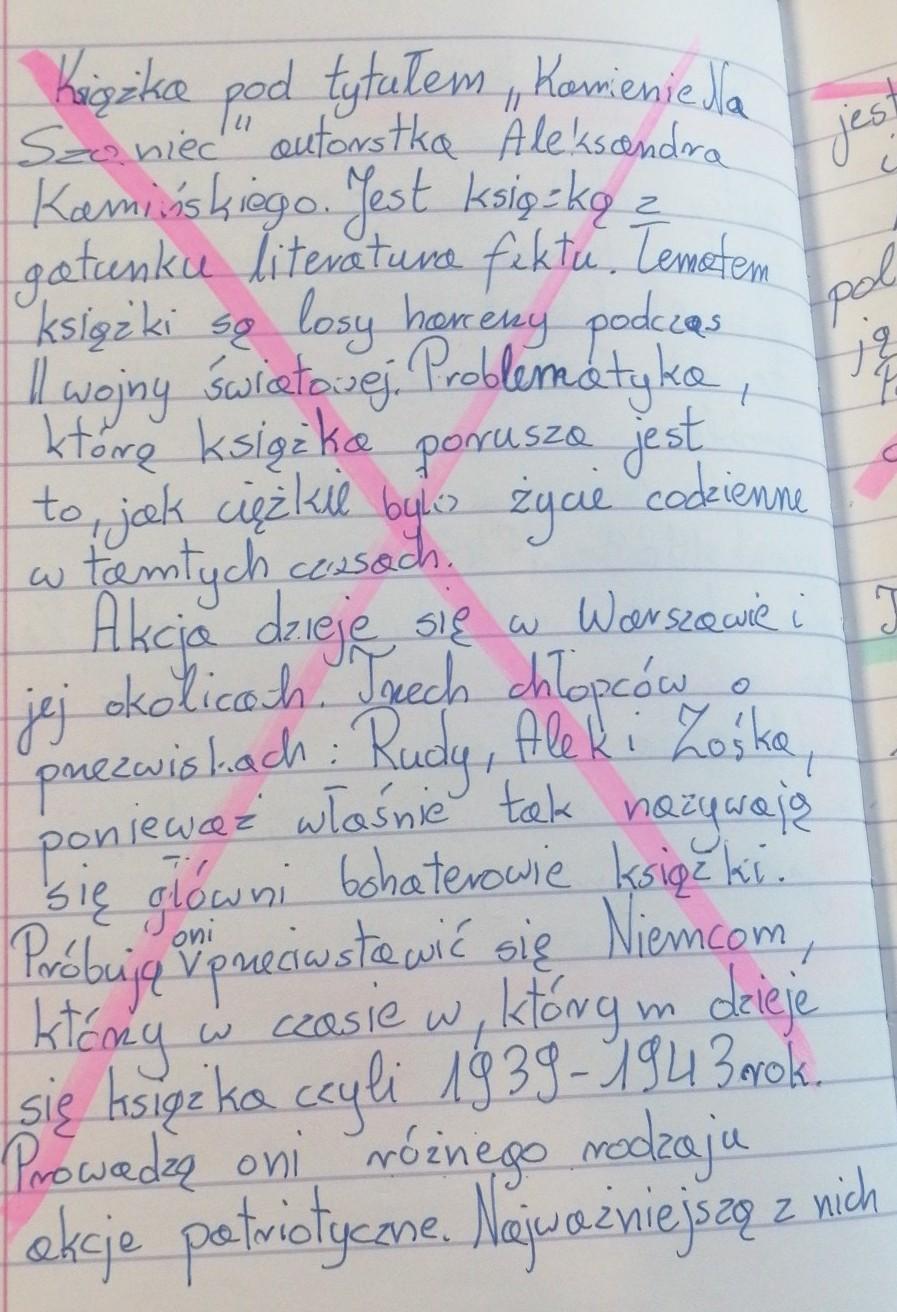 Książka pod tytułem „Kamienie Na
Szaniec" autorstka Aleksandra
Kamińskiego. Jest książką z
gatunku literatura faktu. Tematem
książki są losy harcerzy podczas
II wojny światowej. Problematyka,
którą książka porusza jest
to, jak ciężkie było życie codzienne
w tamtych czasach.
Akcja dzieje się w Warszawie i
jej okolicach. Trzech chłopców o
przezwiskach: Rudy, Alek i Zośka,
ponieważ właśnie tak nazywają
się główni bohaterowie książki.
Próbują oni przeciwstawić się Niemcom,
którzy w czasie w, którym dzieje
się książka czyli 1939-1943 rok.
Prowadzą oni różnego rodzaju
akcje patriotyczne. Najważniejszą z nich
jest
pol
ją